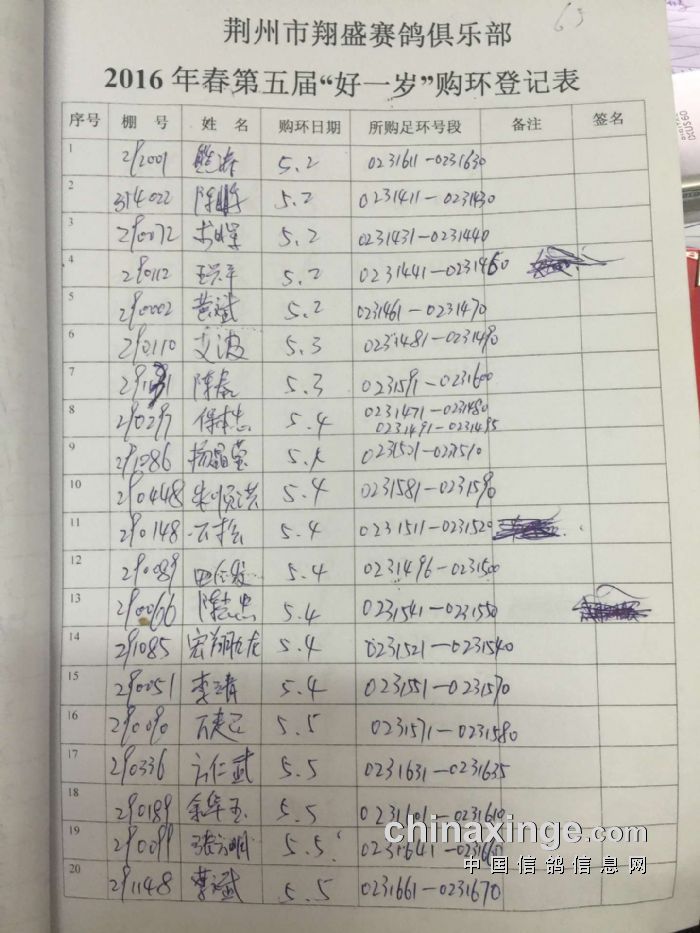 63
荆州市翔盛赛鸽俱乐部
2016年春第五届“好一岁”购环登记表
序号 棚号 姓名 购环日期 所购足环号段 备注 签名
1 292001 5.2 0231611-0231630
2 314022 5.2 0231411-0231430
3 290072 5.2 0231431-0231440
4 290112 王兴平 5.2 0231441-0231460
5 290002 黄斌 5.2 0231461-0231470
6 290110 文波 5.3 0231481-0231490
7 陈春 5.3 0231591-0231600
8 290297 5.4 0231471-0231480
0231491-0231495
9 291086 杨晶莹 5.4
10 290448 朱顺洪 5.4 0231581-0231590
11 290148 石松 5.4 0231511-0231520
12 290089 5.4 0231496-0231500
13 290066 陈志忠 5.4 0231541-0231550
14 291085 宏翔九龙 5.4 0231521-0231540
15 290051 李靖 5.4 0231551-0231570
16 290090 5.5 0231571-0231580
17 290336 方仁武 5.5 0231631-0231635
18 290189 余华玉 5.5
19 290099 张方明 5.5
20 291148 曹斌 5.5 0231661-0231670
chinaxinge.com
中国信鸽信息网